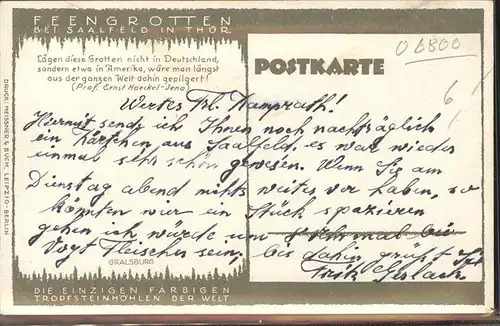 FEENGROTTEN
BEI SAALFELD IN THÜR.
Lägen diese Grotten nicht in Deutschland,
sondern etwa in Amerika, wäre man längst
aus der ganzen Welt dahin gepilgert!
(Prof. Ernst Haeckel-Jena)
POSTKARTE
06800
6
Wertes Frl. Kamprath!
Hiermit sende ich Ihnen noch nachträglich
ein Kärtchen aus Saalfeld, es war wieder
einmal sehr schön gewesen. Wenn Sie am
Dienstag abend nichts weites vor haben, so
könnten wir ein Stück spazieren
gehen ich würde um 8 Uhr mal bei
Vogt Fleischer sein, bis dahin grüßt Sie
Fritz Gerlach
GRALSBURG
DIE EINZIGEN FARBIGEN
TROPFSTEINHÖHLEN DER WELT
DRUCK: MEISSNER & BUCH, LEIPZIG-BERLIN